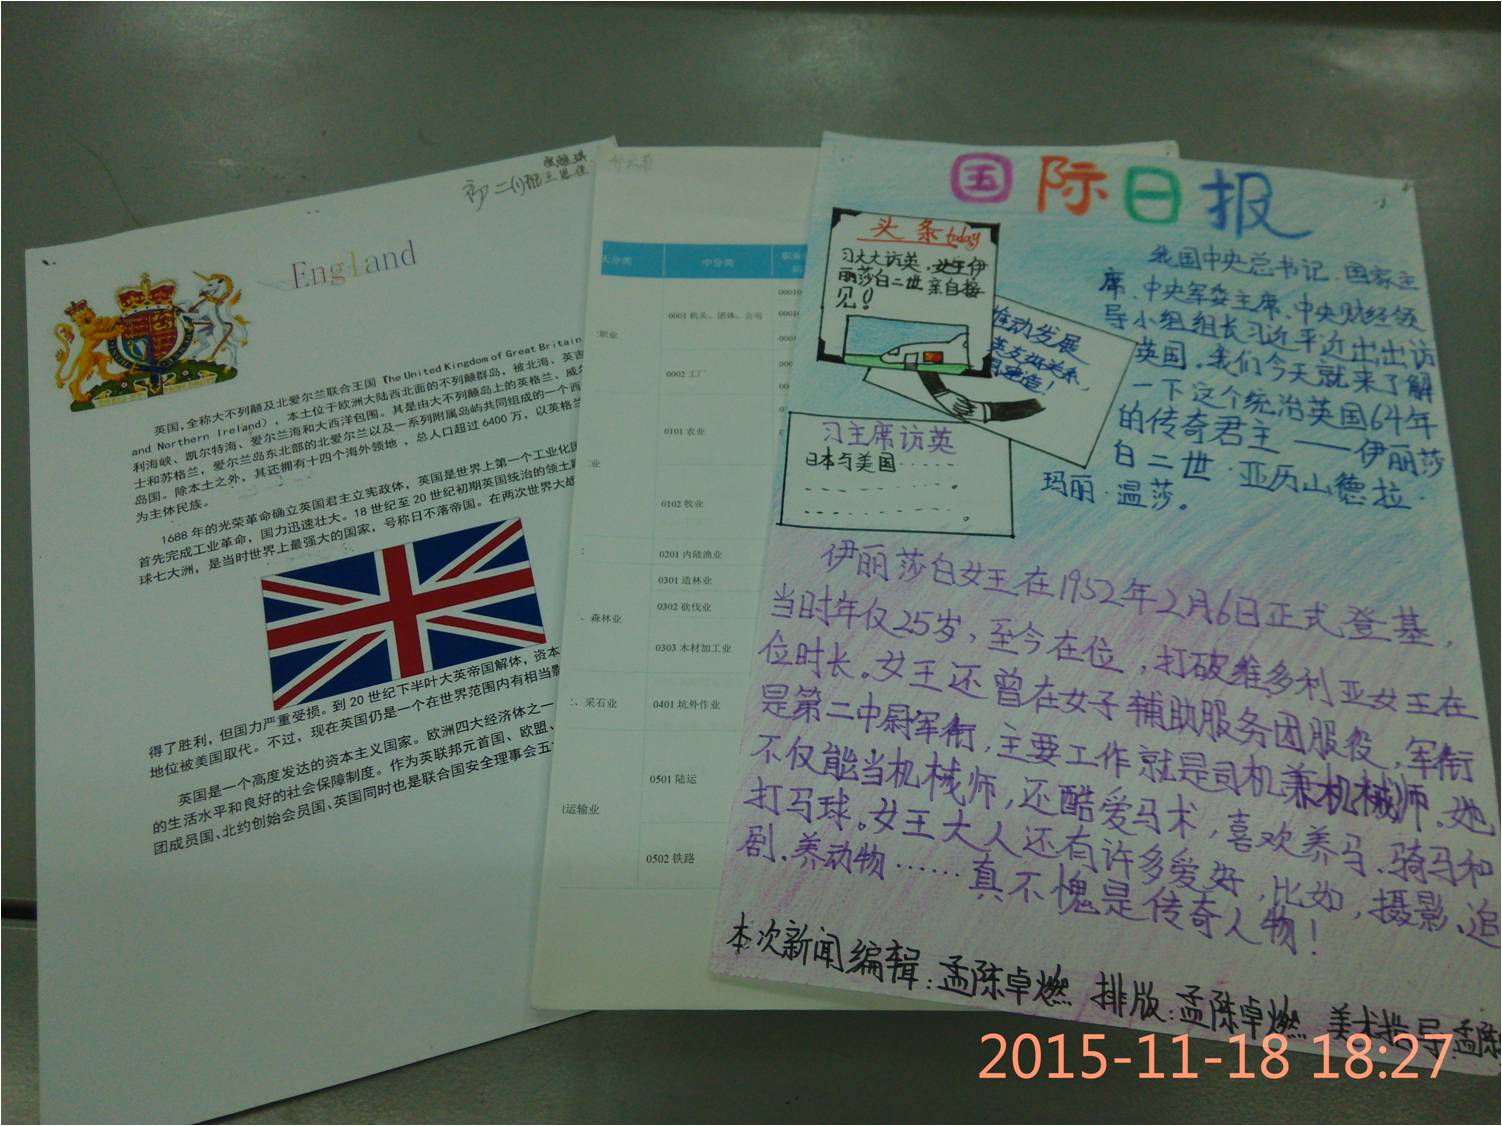 England
英国,全称大不列颠及北爱尔兰联合王国（The United Kingdom of Great Britain
and Northern Ireland），本土位于欧洲大陆西北面的不列颠群岛，被北海、英吉
利海峡、凯尔特海、爱尔兰海和大西洋包围。其是由大不列颠岛上的英格兰、威尔
士和苏格兰，爱尔兰岛东北部的北爱尔兰以及一系列附属岛屿共同组成的一个西
岛国。除本土之外，其还拥有十四个海外领地，总人口超过6400万，以英格兰
为主体民族。
1688年的光荣革命确立英国君主立宪政体，英国是世界上第一个工业化国
首先完成工业革命，国力迅速壮大。18世纪至20世纪初期英国统治的领土跨
球七大洲，是当时世界上最强大的国家，号称日不落帝国。在两次世界大战
得了胜利，但国力严重受损。到20世纪下半叶大英帝国解体，资本
地位被美国取代。不过，现在英国仍是一个在世界范围内有相当影
英国是一个高度发达的资本主义国家。欧洲四大经济体之一
的生活水平和良好的社会保障制度。作为英联邦元首国、欧盟、
团成员国、北约创始会员国、英国同时也是联合国安全理事会五
大分类 中分类 职业
码
0001 机关、团体、公司
职业
0002 工厂
0101 农业
业
0102 牧业
0201 内陆渔业
0301 造林业
0302 砍伐业
、森林业
0303 木材加工业
、采石业 0401 坑外作业
0501 陆运
运输业
0502 铁路
国际日报
头条today
习大大访英，女王伊
丽莎白二世亲自接
见！
推动发展
英友好关系，
习主席访英
日本与美国……
我国中央总书记、国家主
席、中央军委主席、中央财经领
导小组组长习近平近出出访
英国，我们今天就来了解
一下这个统治英国64年
的传奇君主——伊丽莎
白二世·亚历山德拉·
玛丽·温莎。
伊丽莎白女王在1952年2月6日正式登基，
当时年仅25岁，至今在位，打破维多利亚女王在
位时长。女王还曾在女子辅助服务团服役，军衔
是第二中尉军衔，主要工作就是司机兼机械师。她
不仅能当机械师，还酷爱马术，喜欢养马、骑马和
打马球。女王大人还有许多爱好，比如，摄影、追
剧、养动物……真不愧是传奇人物！
本次新闻编辑：孟陈卓燃 排版：孟陈卓燃 美术指导：孟陈
2015-11-18 18:27